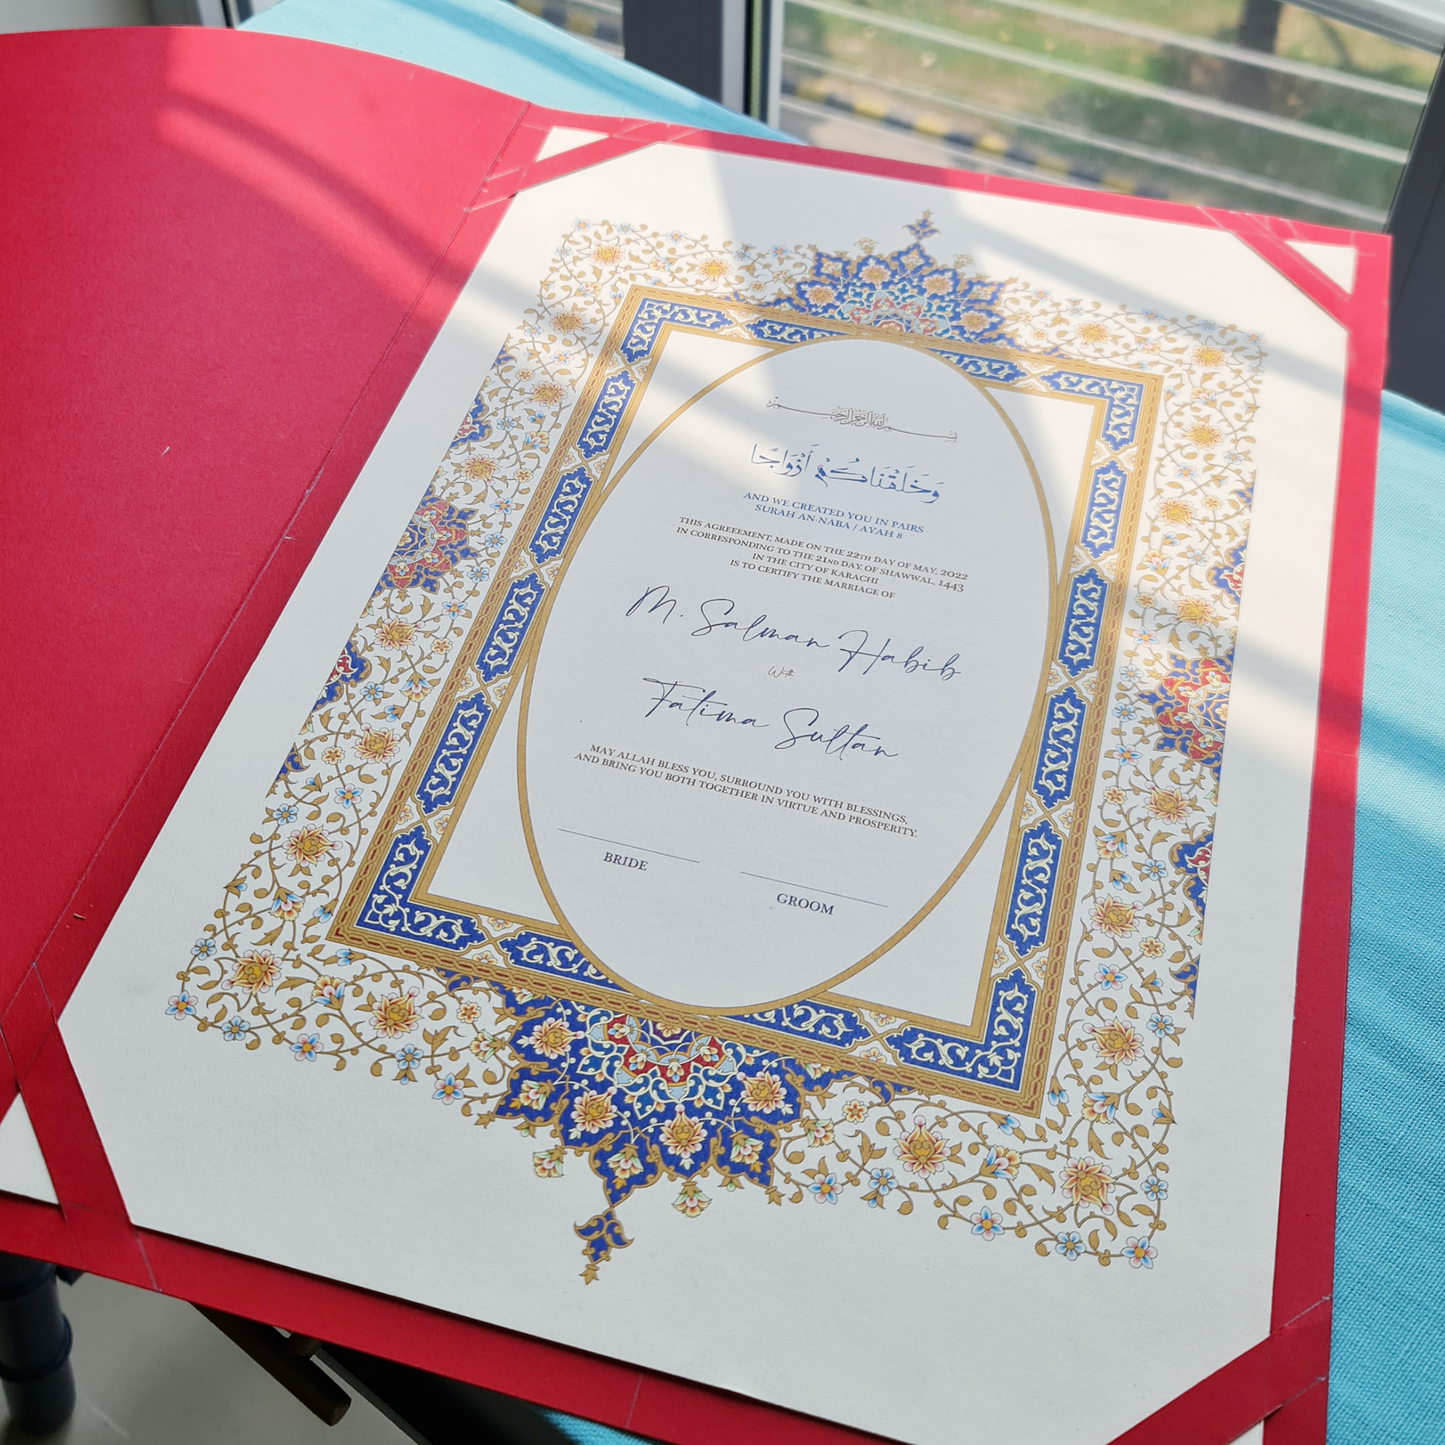 بسم الله الرحمن الرحيم
وَخَلَقْنَاكُمْ أَزْوَاجًا
AND WE CREATED YOU IN PAIRS
SURAH AN-NABA / AYAH 8
THIS AGREEEMENT, MADE ON THE 22TH DAY OF MAY, 2022
IN CORRESPONDING TO THE 21ND DAY OF SHAWWAL, 1443
IN THE CITY OF KARACHI
IS TO CERTIFY THE MARRIAGE OF
M. Salman Habib
With
Fatima Sultan
MAY ALLAH BLESS YOU, SURROUND YOU WITH BLESSINGS,
AND BRING YOU BOTH TOGETHER IN VIRTUE AND PROSPERITY.
BRIDE
GROOM